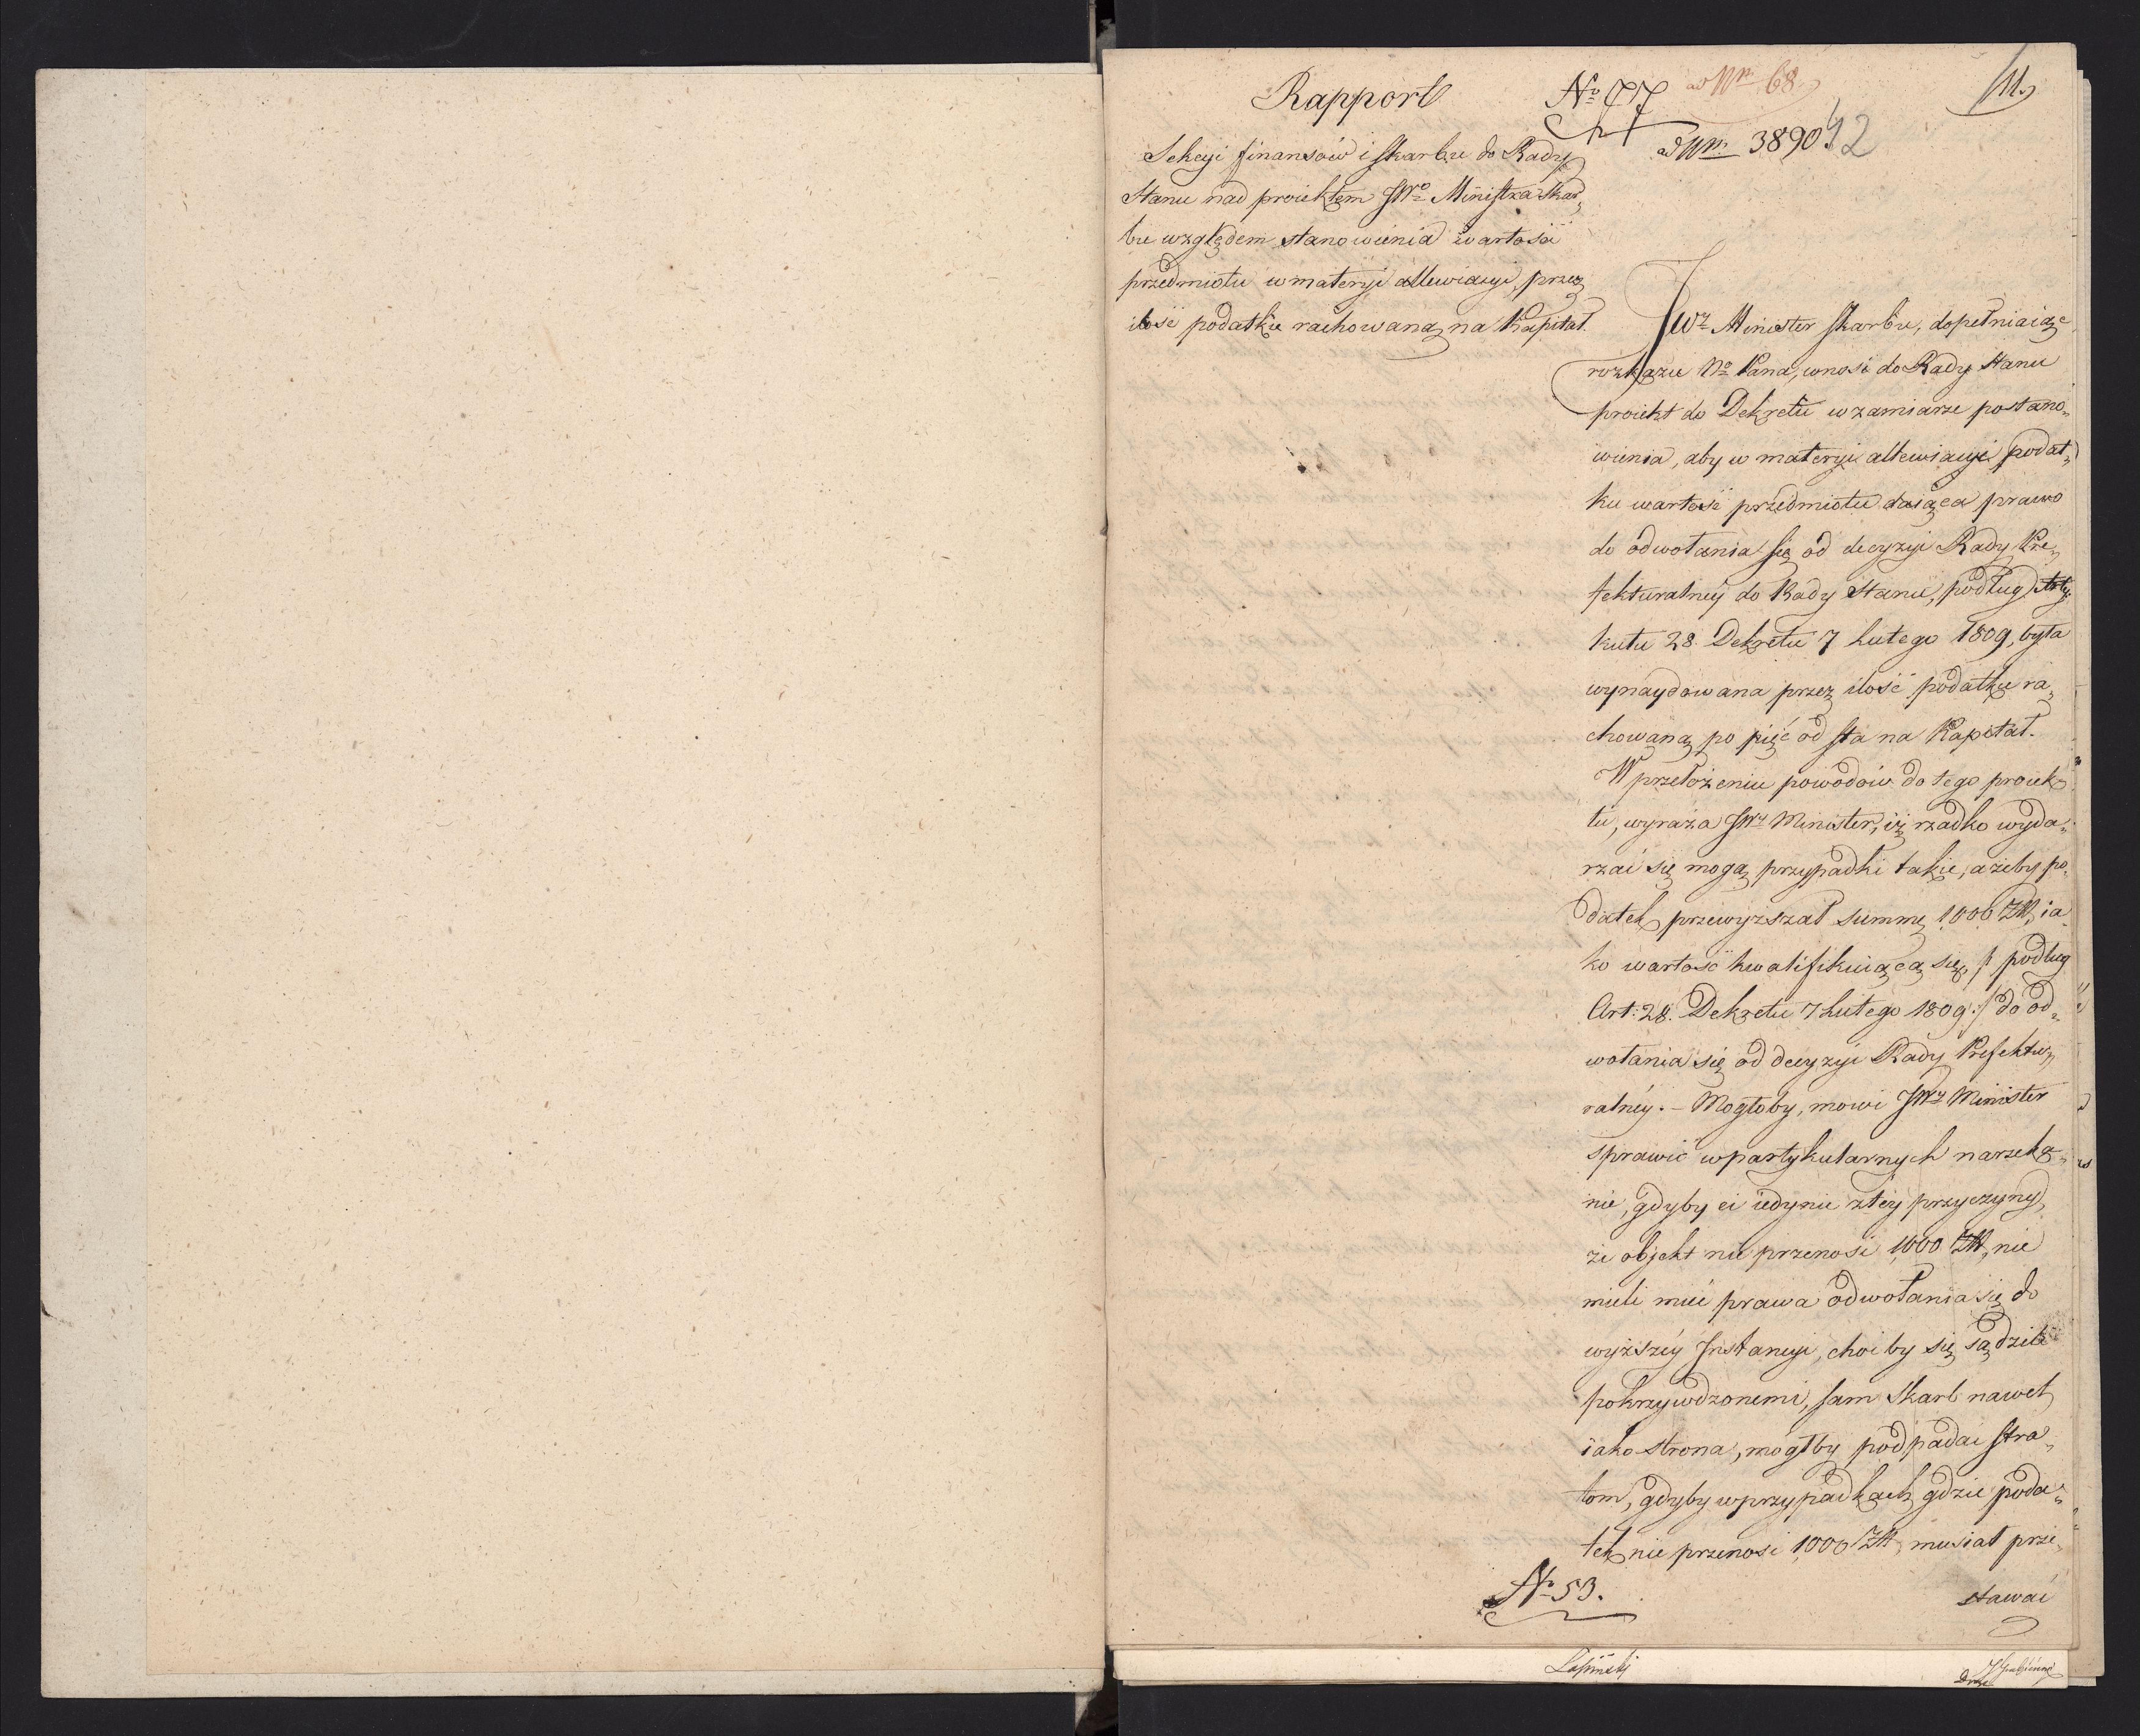 Rapport
Sekcyi finansów i skarbu do Rady
Stanu nad proiektem JWo Ministra Skar„
bu względem stanowienia wartości
przedmiotu w materyi allewiacyi, przez
ilość podatku rachowaną na Kapitał.
No 77
ad Nm 68
ad Nm 3890.
11.
12
JWy Minister Skarbu, dopełniaiąc
rozkazu No Pana, wnosi do Rady Stanu
proiekt do Dekretu w zamiarze postano„
wienia, aby w materyi allewiacyi podat„
ku wartość przedmiotu daiąca prawo
do odwołania się od decyzyi Rady Pre„
fekturalney do Rady Stanu, podług Arty„
kułu 28. Dekretu 7 Lutego 1809, była
wynaydowana przez ilość podatku ra„
chowaną po pięć od sta na Kapitał.
W przełożeniu powodów do tego proiek„
tu, wyraża JWy Minister, iż rzadko wyda„
rzać się mogą przypadki takie, ażeby po„
datek przewyższał summę 1000 Zł, ia
ko wartość kwalifikuiącą się /: podług
Art: 28. Dekretu 7 Lutego 1809 :/ do od„
wołania się od decyzyi Rady Prefektu„
ralney. – Mogłoby, mowi JWy Minister
sprawić w partykularnych narzeka„
nie, gdyby ci iedynie z tey przyczyny,
że objekt nie przenosi 1000 Zł, nie
mieli mieć prawa odwołania się do
wyższey Instancyi, choć by się sądzili
pokrzywdzonemi, sam Skarb nawet,
iako strona, mogłby podpadać stra„
tom, gdyby w przypadkach, gdzie poda„
tek nie przenosi 1000 Zł, musiał prze„
stawać
No 53.
Łapiński